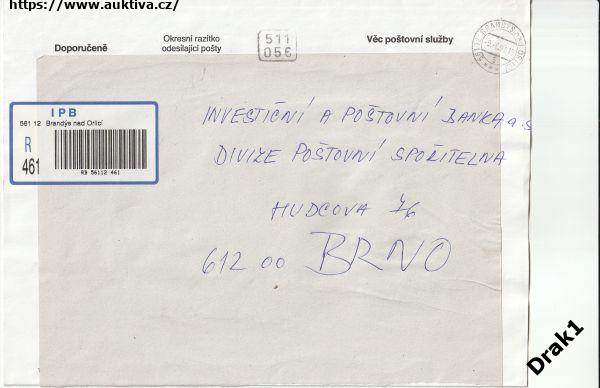 https://www.auktiva.cz/
Doporučeně
Okresní razítko
odesílající pošty
511
056
Věc poštovní služby
IPB
561 12 Brandýs nad Orlicí
R
461
RB 56112 461
INVESTIČNÍ A POŠTOVNÍ BANKA a.s
DIVIZE POŠTOVNÍ SPOŘITELNA
HUDCOVA 76
612 00 BRNO
Drak1